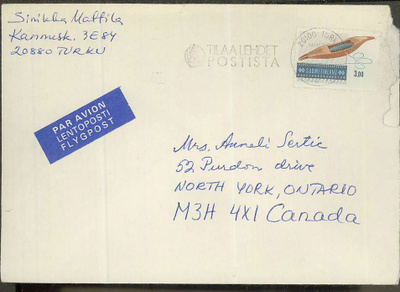 Sirikka Mattila
Karinusk. 3E84
20880 TURKU
TILAA LEHDET
POSTISTA
20100 TURKU
SUOMI FINLAND
3,00
PAR AVION
LENTOPOSTI
FLYGPOST
Mrs. Anneli Sertic
52 Purdon drive
NORTH YORK, ONTARIO
M3H 4X1 Canada